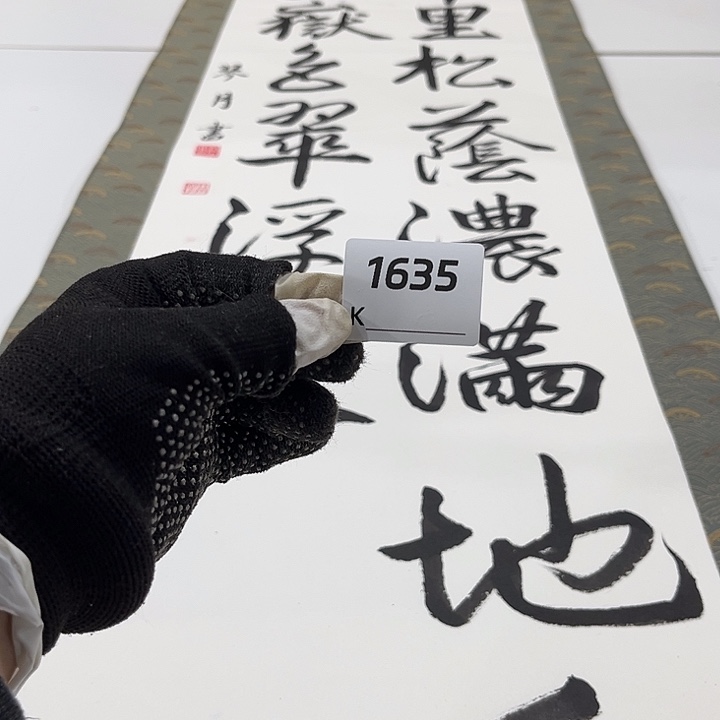 重松蔭濃滿地
嶽色翠浮
琴月書
1635
K